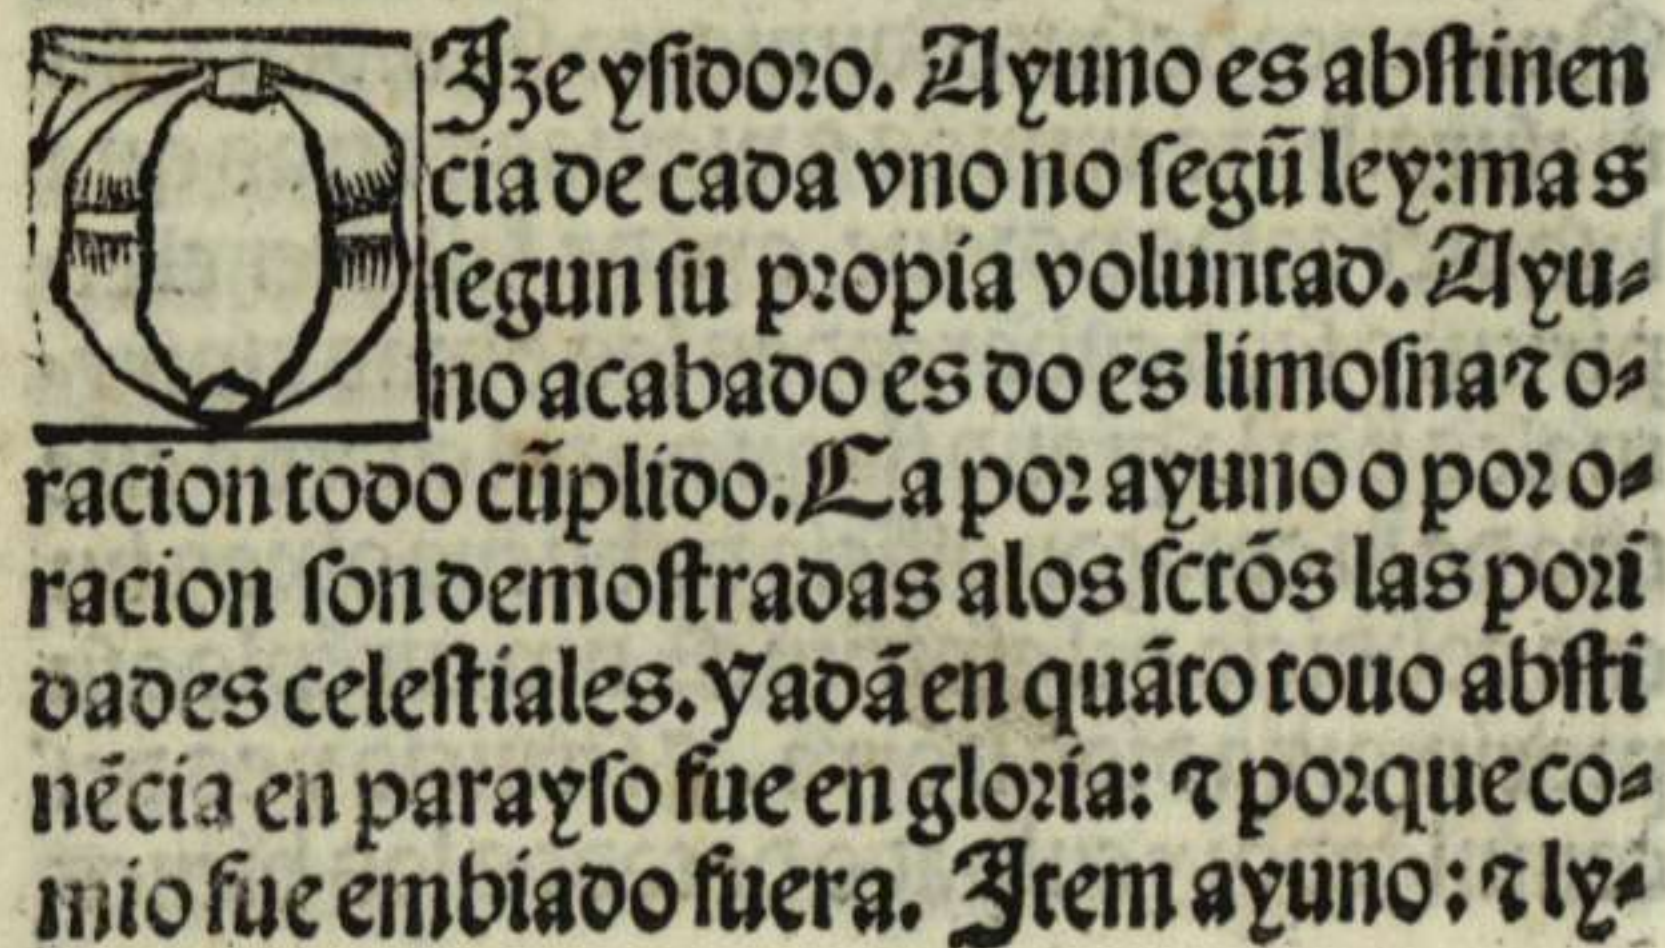 DIze yſidoro. Ayuno es abſtinen
cia de cada vno no ſegũ ley:mas
ſegun ſu propia voluntad. Ayu⸗
no acabado es do es limoſna ⁊ o⸗
racion todo cũplido. Ca por ayuno o por o⸗
racion ſon demoſtradas alos ſctõs las pori
dades celeſtiales. y adã en quãto touo abſti
nẽcia en parayſo fue en gloria: ⁊ porque co⸗
mio fue embiado fuera. Item ayuno: ⁊ ly⸗